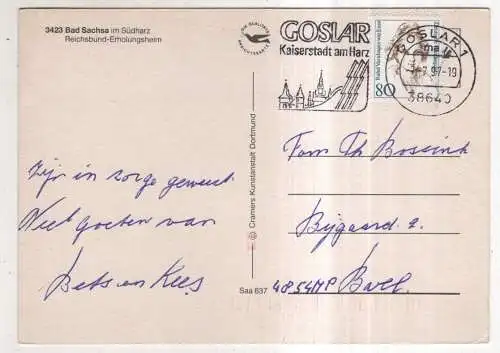 3423 Bad Sachsa im Südharz
Reichsbund-Erholungsheim
GOSLAR
Kaiserstadt am Harz
GOSLAR 1
-19
38640
80
Zijn in zorge geweest
Veel groeten van
Bets en Kees
© Cramers Kunstanstalt Dortmund
Saa 637
Fam Th Bossink
Bijgaard 2.
4854MP Bavel.